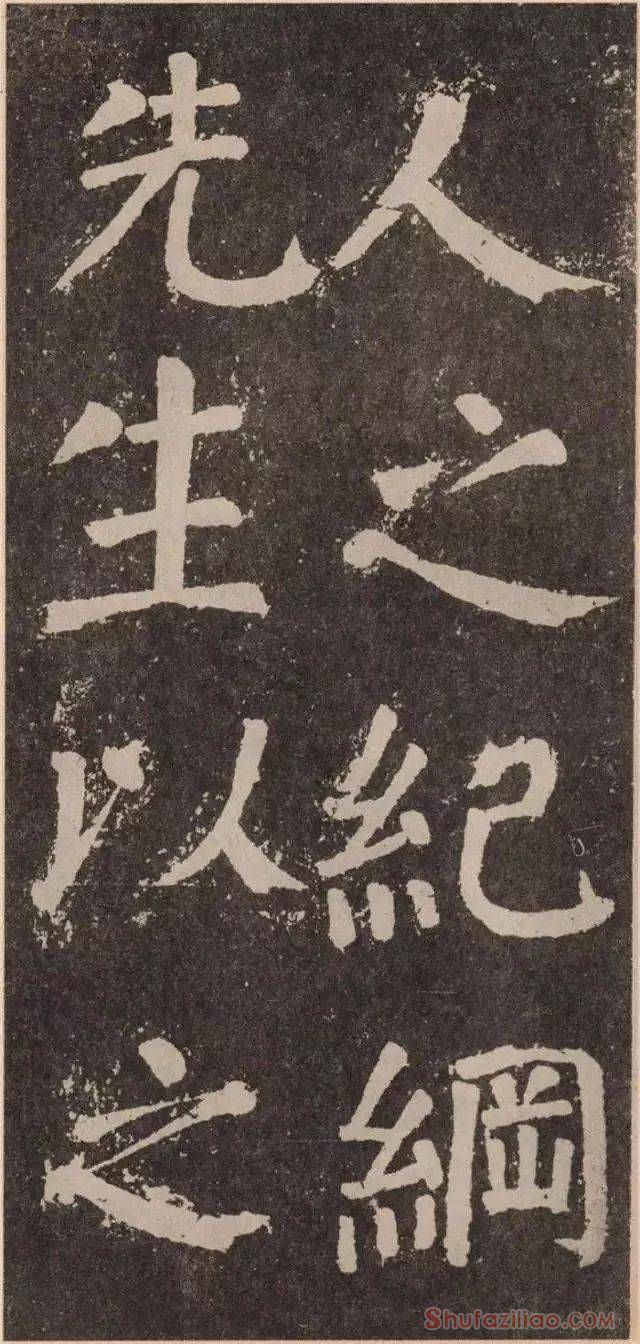 人之紀綱
先生以之
Shufaziliao.COM